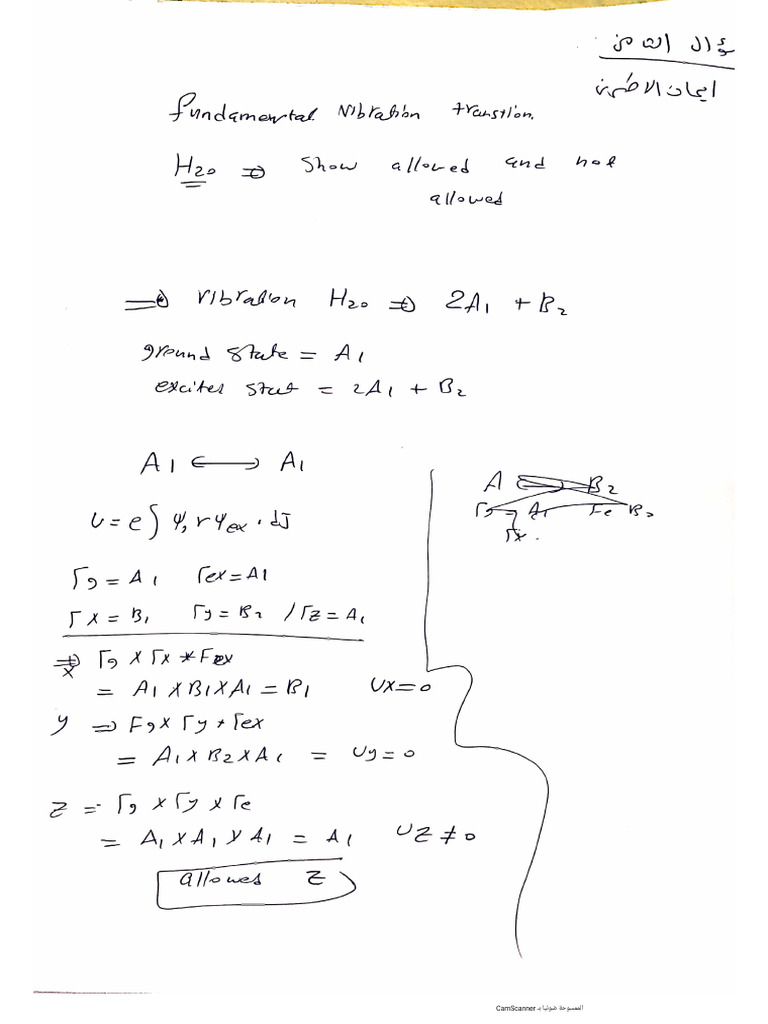 سؤال الثامن
ايمان الاطرش
fundamental Nibration transtion.
H2O ⇒ Show allowed and not
allowed
⇒ vibration H2O ⇒ 2A1 + B2
ground state = A1
excites stat = 2A1 + B2
A1 ⟷ A1
U = e∫ψg r ψex . dJ
Γg = A1 Γex = A1
Γx = B1 Γy = B2 / Γz = A1
⇒ x Γg × Γx * Γex
= A1 × B1 × A1 = B1 Ux = 0
y ⇒ Γg × Γy * Γex
= A1 × B2 × A1 = Uy = 0
z = Γg × Γy × Γe
= A1 × A1 × A1 = A1 Uz ≠ 0
allowes z
A B2
Γg A1 Γe B2
Γx .
الممسوحة ضوئيا بـ CamScanner